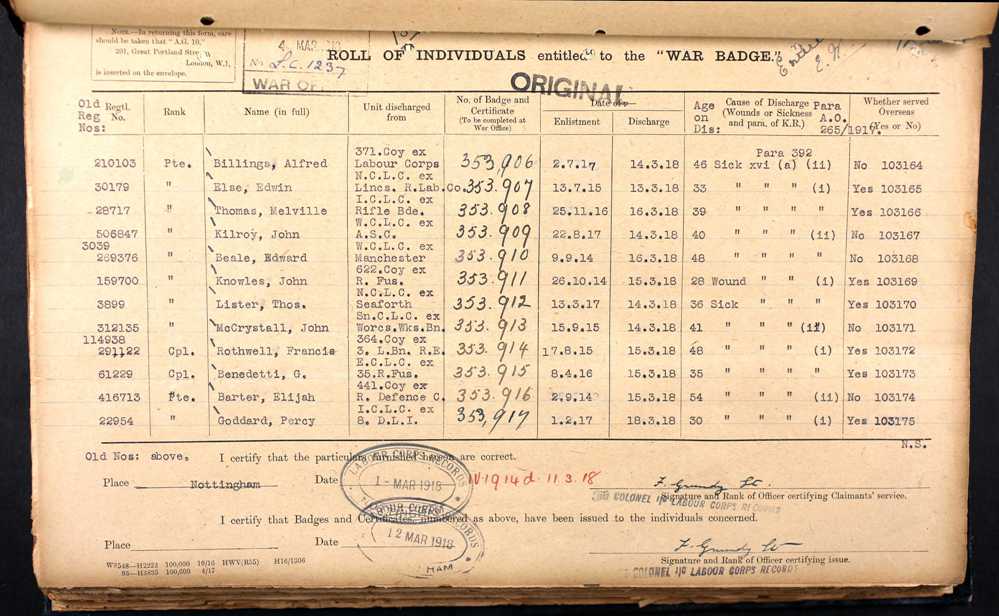 NOTE.—In returning this form, care
should be taken that "A.G. 10,"
291, Great Portland Street,
London, W.1,
is inserted on the envelope.
4 MAR 1918
No S.C. 1237
WAR OFFICE
ROLL OF INDIVIDUALS entitled to the "WAR BADGE."
ORIGINAL
Old Reg Nos: Regtl. No. Rank Name (in full) Unit discharged from No. of Badge and Certificate (To be completed at War Office) Date of Enlistment Discharge Age on Dis: Cause of Discharge (Wounds or Sickness and para. of K.R.) Para A.O. 265/1917. Whether served Overseas (Yes or No)
371.Coy ex Para 392
210103 Pte. Billings, Alfred Labour Corps 353,906 2.7.17 14.3.18 46 Sick xvi (a) (ii) No 103164
N.C.L.C. ex
30179 " Else, Edwin Lincs. R.Lab.Co. 353.907 13.7.15 13.3.18 33 " " " (i) Yes 103165
I.C.L.C. ex
28717 " Thomas, Melville Rifle Bde. 353.908 25.11.16 16.3.18 39 " " " " Yes 103166
W.C.L.C. ex
506847 " Kilroy, John A.S.C. 353.909 22.8.17 14.3.18 40 " " " (ii) No 103167
3039 W.C.L.C. ex
269376 " Beale, Edward Manchester 353.910 9.9.14 16.3.18 48 " " " " No 103168
622.Coy ex
159700 " Knowles, John R. Fus. 353.911 26.10.14 15.3.18 28 Wound " " (i) Yes 103169
N.C.L.C. ex
3899 " Lister, Thos. Seaforth 353.912 13.3.17 14.3.18 36 Sick " " " Yes 103170
Sn.C.L.C. ex
312135 " McCrystall, John Worcs.Wks.Bn. 353.913 15.9.15 14.3.18 41 " " " (ii) No 103171
114938 364.Coy ex
291122 Cpl. Rothwell, Francis 3. L.Bn. R.E. 353.914 17.8.15 15.3.18 48 " " " (i) Yes 103172
E.C.L.C. ex
61229 Cpl. Benedetti, G. 35.R.Fus. 353.915 8.4.16 15.3.18 35 " " " " Yes 103173
441.Coy ex
416713 Pte. Barter, Elijah R. Defence C. 353.916 2.9.14 15.3.18 54 " " " (ii) No 103174
I.C.L.C. ex
22954 " Goddard, Percy 8. D.L.I. 353,917 1.2.17 18.3.18 30 " " " (i) Yes 103175
N.S.
Old Nos: above. I certify that the particulars furnished herein are correct.
Place Nottingham Date 11.3.18
LABOUR CORPS RECORDS
1 - MAR 1918
F. Grundy Lt.
COLONEL I/C LABOUR CORPS RECORDS
Signature and Rank of Officer certifying Claimants' service.
I certify that Badges and Certificates, numbered as above, have been issued to the individuals concerned.
LABOUR CORPS RECORDS
12 MAR 1918
Place Date
F. Grundy Lt
Signature and Rank of Officer certifying issue.
COLONEL I/C LABOUR CORPS RECORDS
W8548—H2223 100,000 10/16 HWV(R35) H16/1306
95—H3835 100,000 4/17